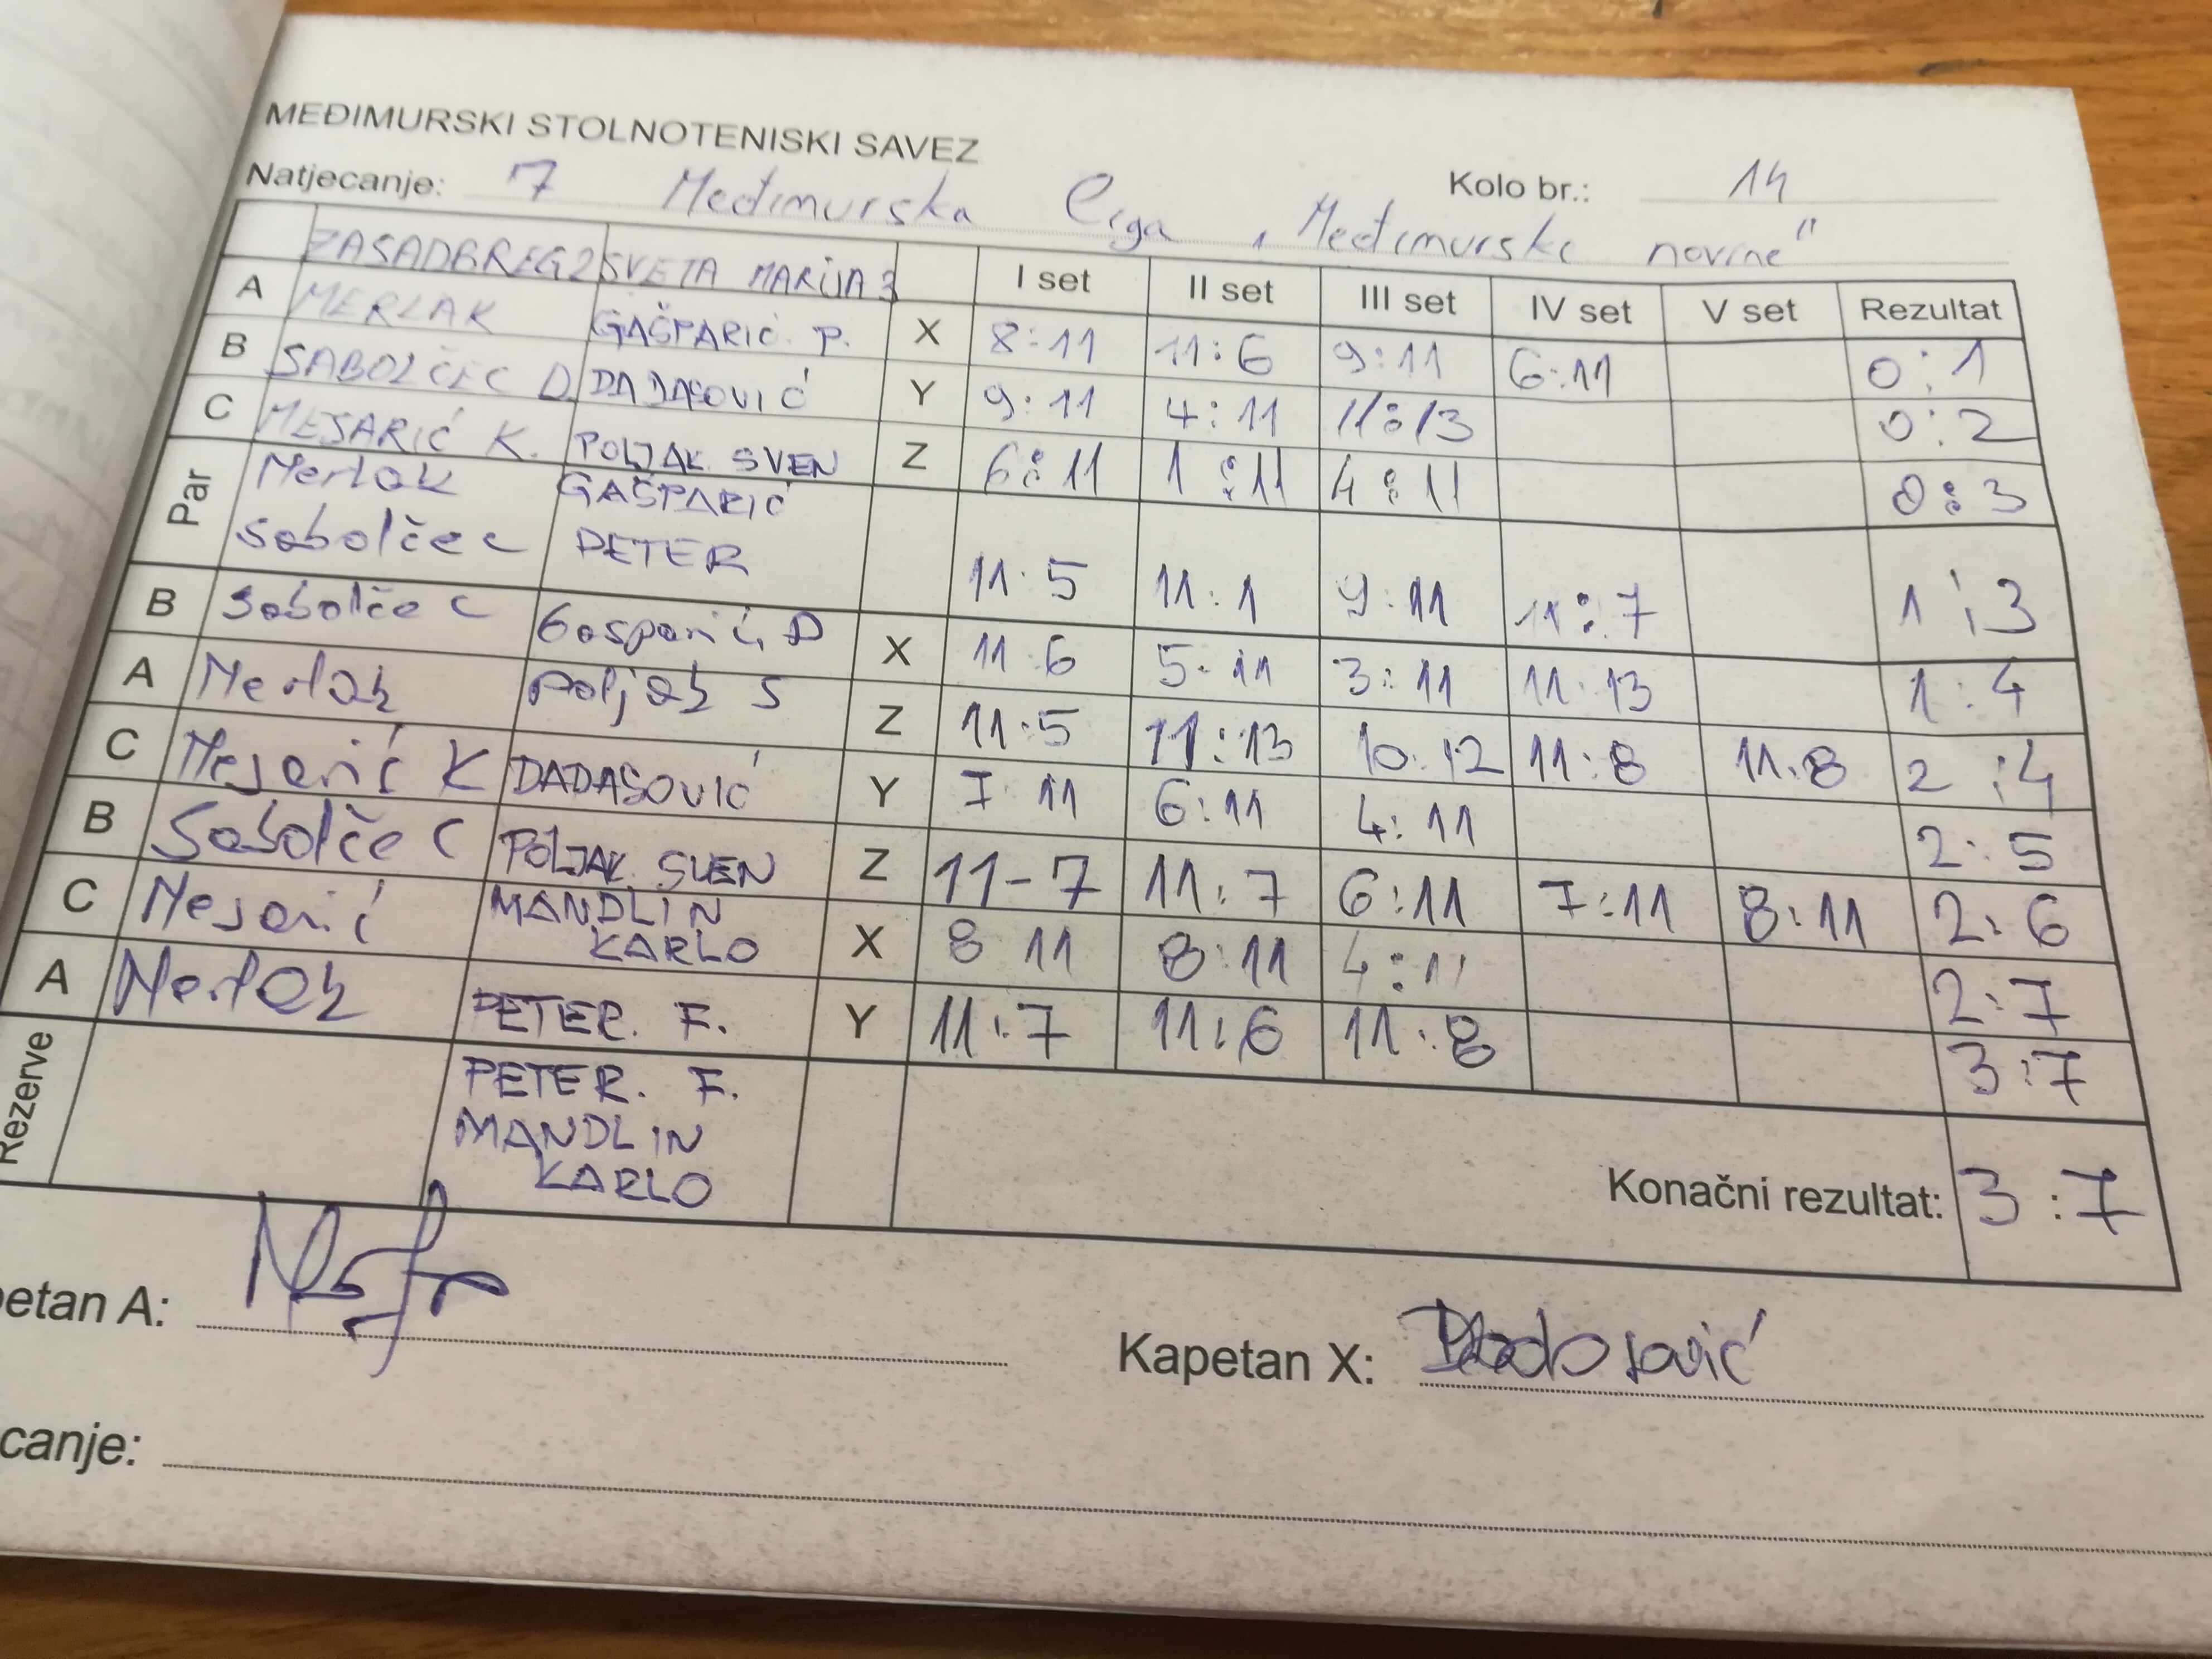 MEĐIMURSKI STOLNOTENISKI SAVEZ
Natjecanje: 7 Međimurska liga „Međimurske novine" Kolo br.: 14
ZASADBREG 2 SVETA MARIJA 3 I set II set III set IV set V set Rezultat
A MERLAK GAŠPARIĆ P. X 8:11 11:6 9:11 6:11 0:1
B SABOLČEC D. DADASOVIĆ Y 9:11 4:11 11:13 0:2
C MESARIĆ K. POLJAK SVEN Z 6:11 1:11 4:11 0:3
Par Merlak GAŠPARIĆ
Sobolčec PETER 11:5 11:1 9:11 11:7 1:3
B Sobolčec Gosparić, D X 11 6 5:11 3:11 11:13 1:4
A Merlak Poljak S Z 11:5 11:13 10:12 11:8 11:8 2:4
C Mesarić K DADASOVIĆ Y 7 11 6:11 4:11 2:5
B Sobolčec POLJAK SVEN Z 11-7 11:7 6:11 7:11 8:11 2:6
C Mesarić MANDLIN
KARLO X 8 11 8:11 4:11 2:7
A Merlak PETER. F. Y 11:7 11:6 11:8 3:7
Rezerve PETER. F.
MANDLIN
KARLO
Konačni rezultat: 3:7
petan A:
Kapetan X: Dadasović
canje: